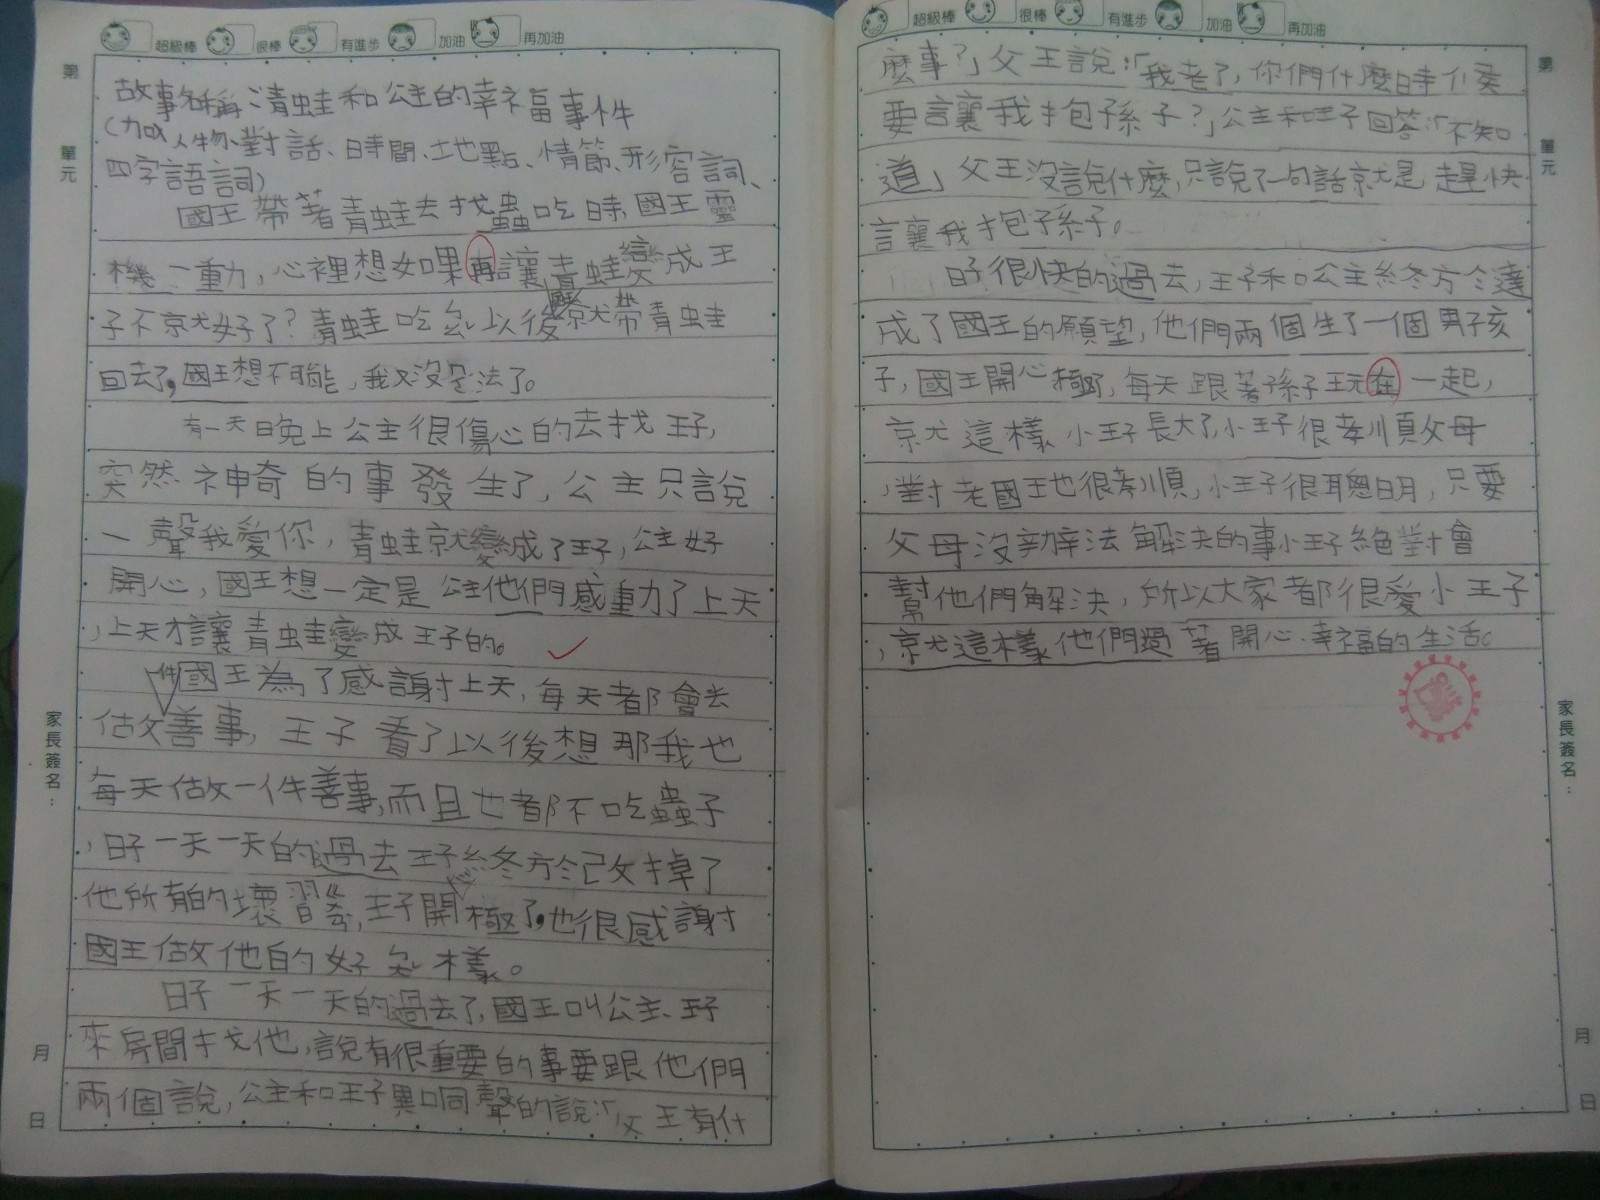 超級棒 很棒 有進步 加油 再加油
第 單元
故事名稱:清蛙和公主的幸福事件
(加以人物、對話、時間、地點、情節、形容詞、
四字語詞)
國王帶著青蛙去找蟲吃時,國王靈
機一動,心裡想如果再讓青蛙變成王
子不就好了?青蛙吃飽以後國王就帶青蛙
回去了,國王想不可能,我又沒魔法了。
有一天晚上公主很傷心的去找王子,
突然神奇的事發生了,公主只說
一聲我愛你,青蛙就變成了王子,公主好
開心,國王想一定是公主他們感動了上天
,上天才讓青蛙變成王子的。
國王為了感謝上天,每天都會去
做件善事,王子看了以後想那我也
每天做一件善事,而且也都不吃蟲子
,日子一天一天的過去王子終於改掉了
他所有的壞習慣,王子開心極了,也很感謝
國王做他的好榜樣。
日子一天一天的過去了,國王叫公主、王子
來房間找他,說有很重要的事要跟他們
兩個說,公主和王子異口同聲的說:「父王有什
家長簽名:
月 日
超級棒 很棒 有進步 加油 再加油
第 單元
麼事?」父王說:「我老了,你們什麼時候
要讓我抱孫子?」公主和王子回答:「不知
道」父王沒說什麼,只說了一句話就是趕快
讓我抱孫子。
日子很快的過去,王子和公主終於達
成了國王的願望,他們兩個生了一個男孩
子,國王開心極了,每天跟著孫子玩在一起,
就這樣小王子長大了,小王子很孝順父母
,對老國王也很孝順,小王子很聰明,只要
父母沒辦法解決的事小王子絕對會
幫他們解決,所以大家都很愛小王子
,就這樣他們過著開心、幸福的生活。
家長簽名:
月 日